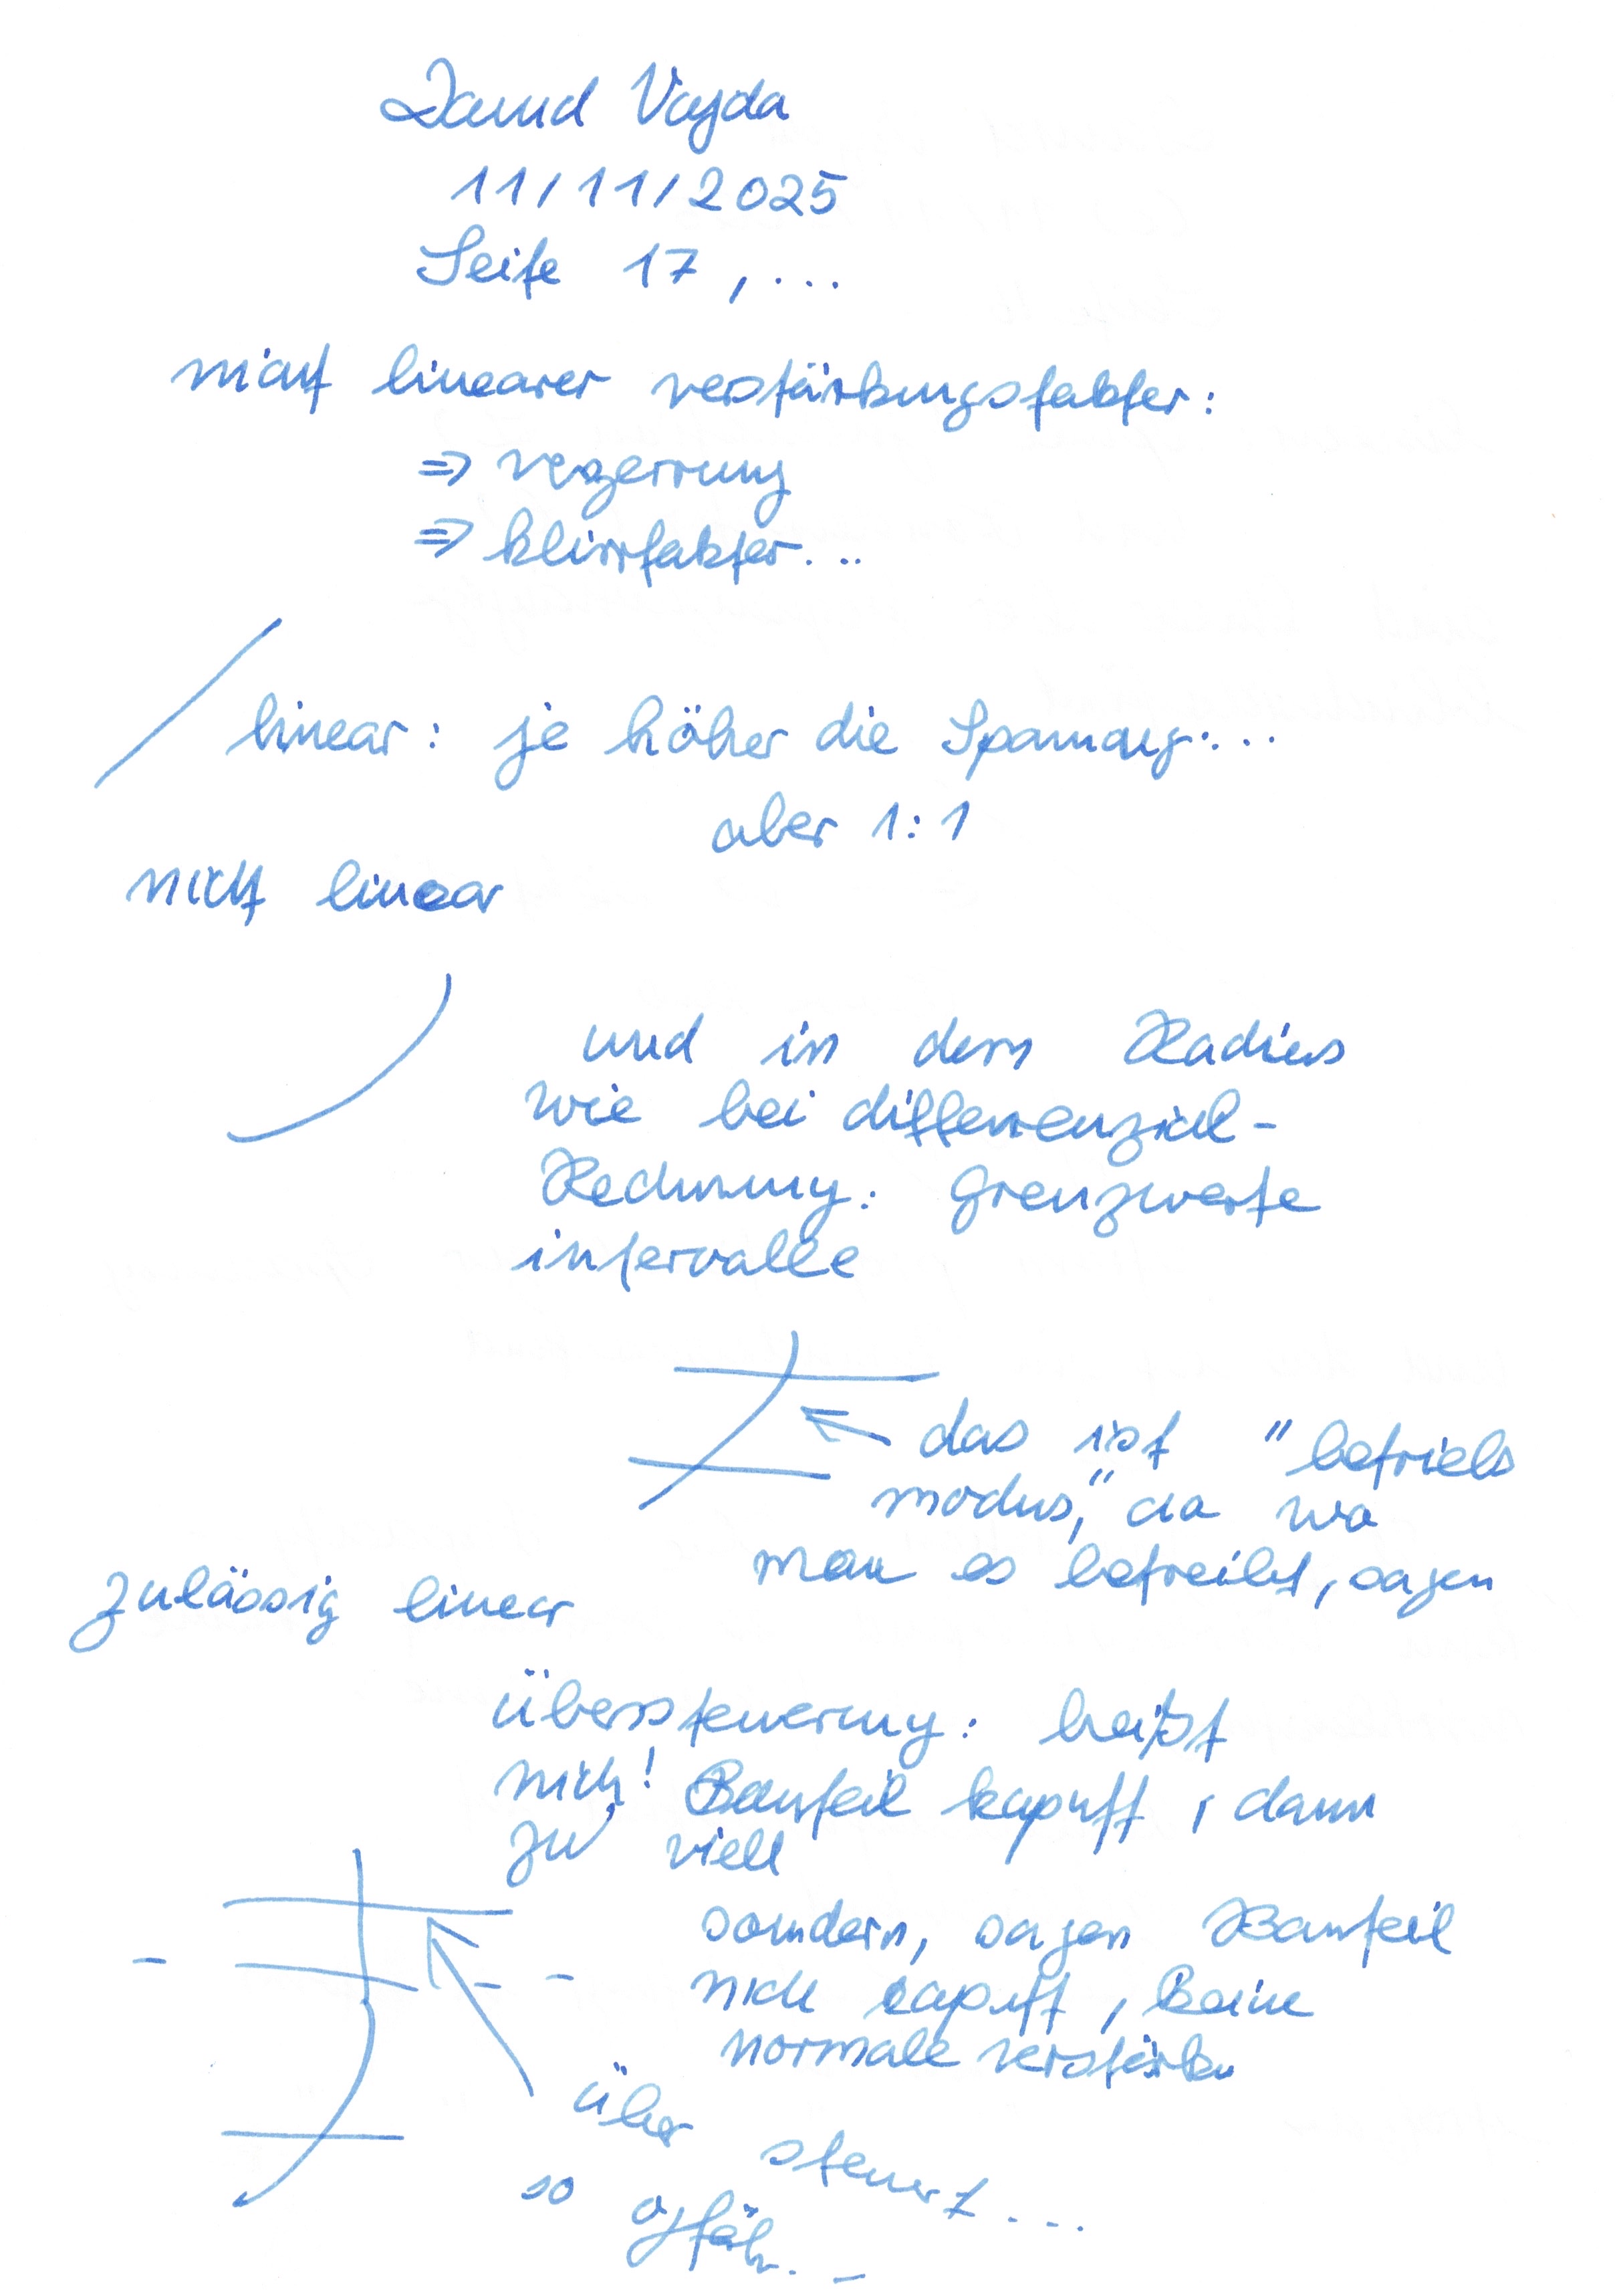 David Vajda
11/11/2025
Seite 17, ...
nicht linearer verstärkungsfaktor:
⇒ verzerrung
⇒ klirrfaktor...
linear: je höher die Spannung...
aber 1:1
nicht linear
und in dem Radius
wie bei differenziel-
Rechnung: Grenzwerte
intervalle
das ist "betriebs
modus," da wo
man es betreibt, sagen
zulässig linear
übersteuerung: heißt
nich! Bauteil kaputt, dann
zu viell
sondern, sagen Bauteil
nich kaputt, keine
normale verstärku
über steuert...
so